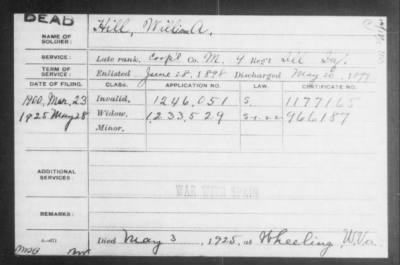 DEAD
NAME OF SOLDIER: Hill, William A.
SERVICE: Late rank, Corp'l Co. M, 4 Reg't Ill. Inf.
TERM OF SERVICE: Enlisted June 28, 1898 Discharged May 20, 1899
DATE OF FILING. CLASS. APPLICATION NO. LAW. CERTIFICATE NO.
1900, Mar. 23 Invalid, 1246,051 1177165
1925 May 28 Widow, 1,233,529 966187
Minor,
ADDITIONAL SERVICES:
WAR WITH SPAIN
REMARKS:
Died May 3, 1925, at Wheeling, W.Va.